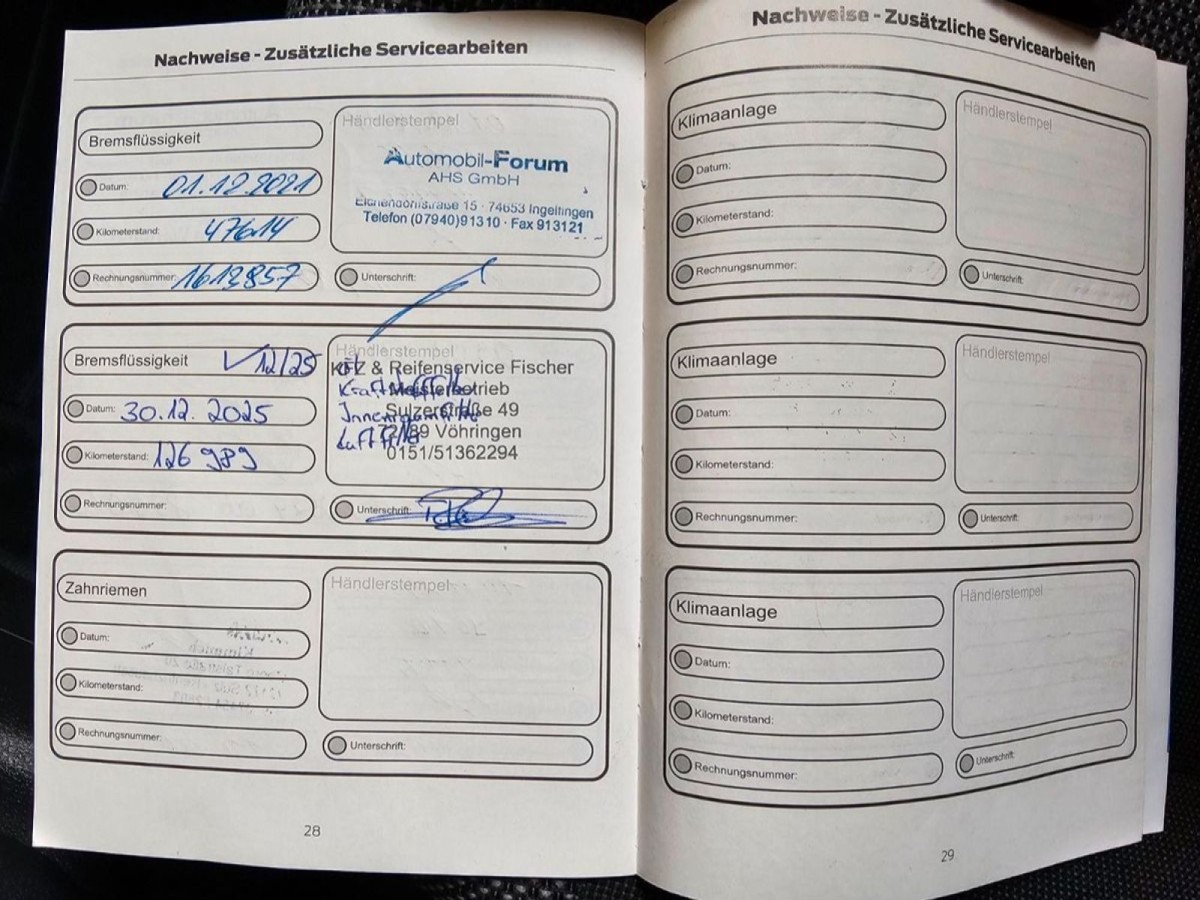 Nachweise - Zusätzliche Servicearbeiten
Bremsflüssigkeit
Datum: 01.12.2021
Kilometerstand: 47614
Rechnungsnummer: 1613857
Händlerstempel
Automobil-Forum
AHS GmbH
Eichendorffstraße 15 · 74653 Ingelfingen
Telefon (07940)91310 · Fax 913121
Unterschrift:
Bremsflüssigkeit ✓ 12/25
Datum: 30.12.2025
Kilometerstand: 126 989
Rechnungsnummer:
Händlerstempel
KFZ & Reifenservice Fischer
Meisterbetrieb
Sulzerstraße 49
72189 Vöhringen
0151/51362294
Unterschrift:
Zahnriemen
Datum:
Kilometerstand:
Rechnungsnummer:
Händlerstempel
Unterschrift:
28
Nachweise - Zusätzliche Servicearbeiten
Klimaanlage
Datum:
Kilometerstand:
Rechnungsnummer:
Händlerstempel
Unterschrift:
Klimaanlage
Datum:
Kilometerstand:
Rechnungsnummer:
Händlerstempel
Unterschrift:
Klimaanlage
Datum:
Kilometerstand:
Rechnungsnummer:
Händlerstempel
Unterschrift:
29